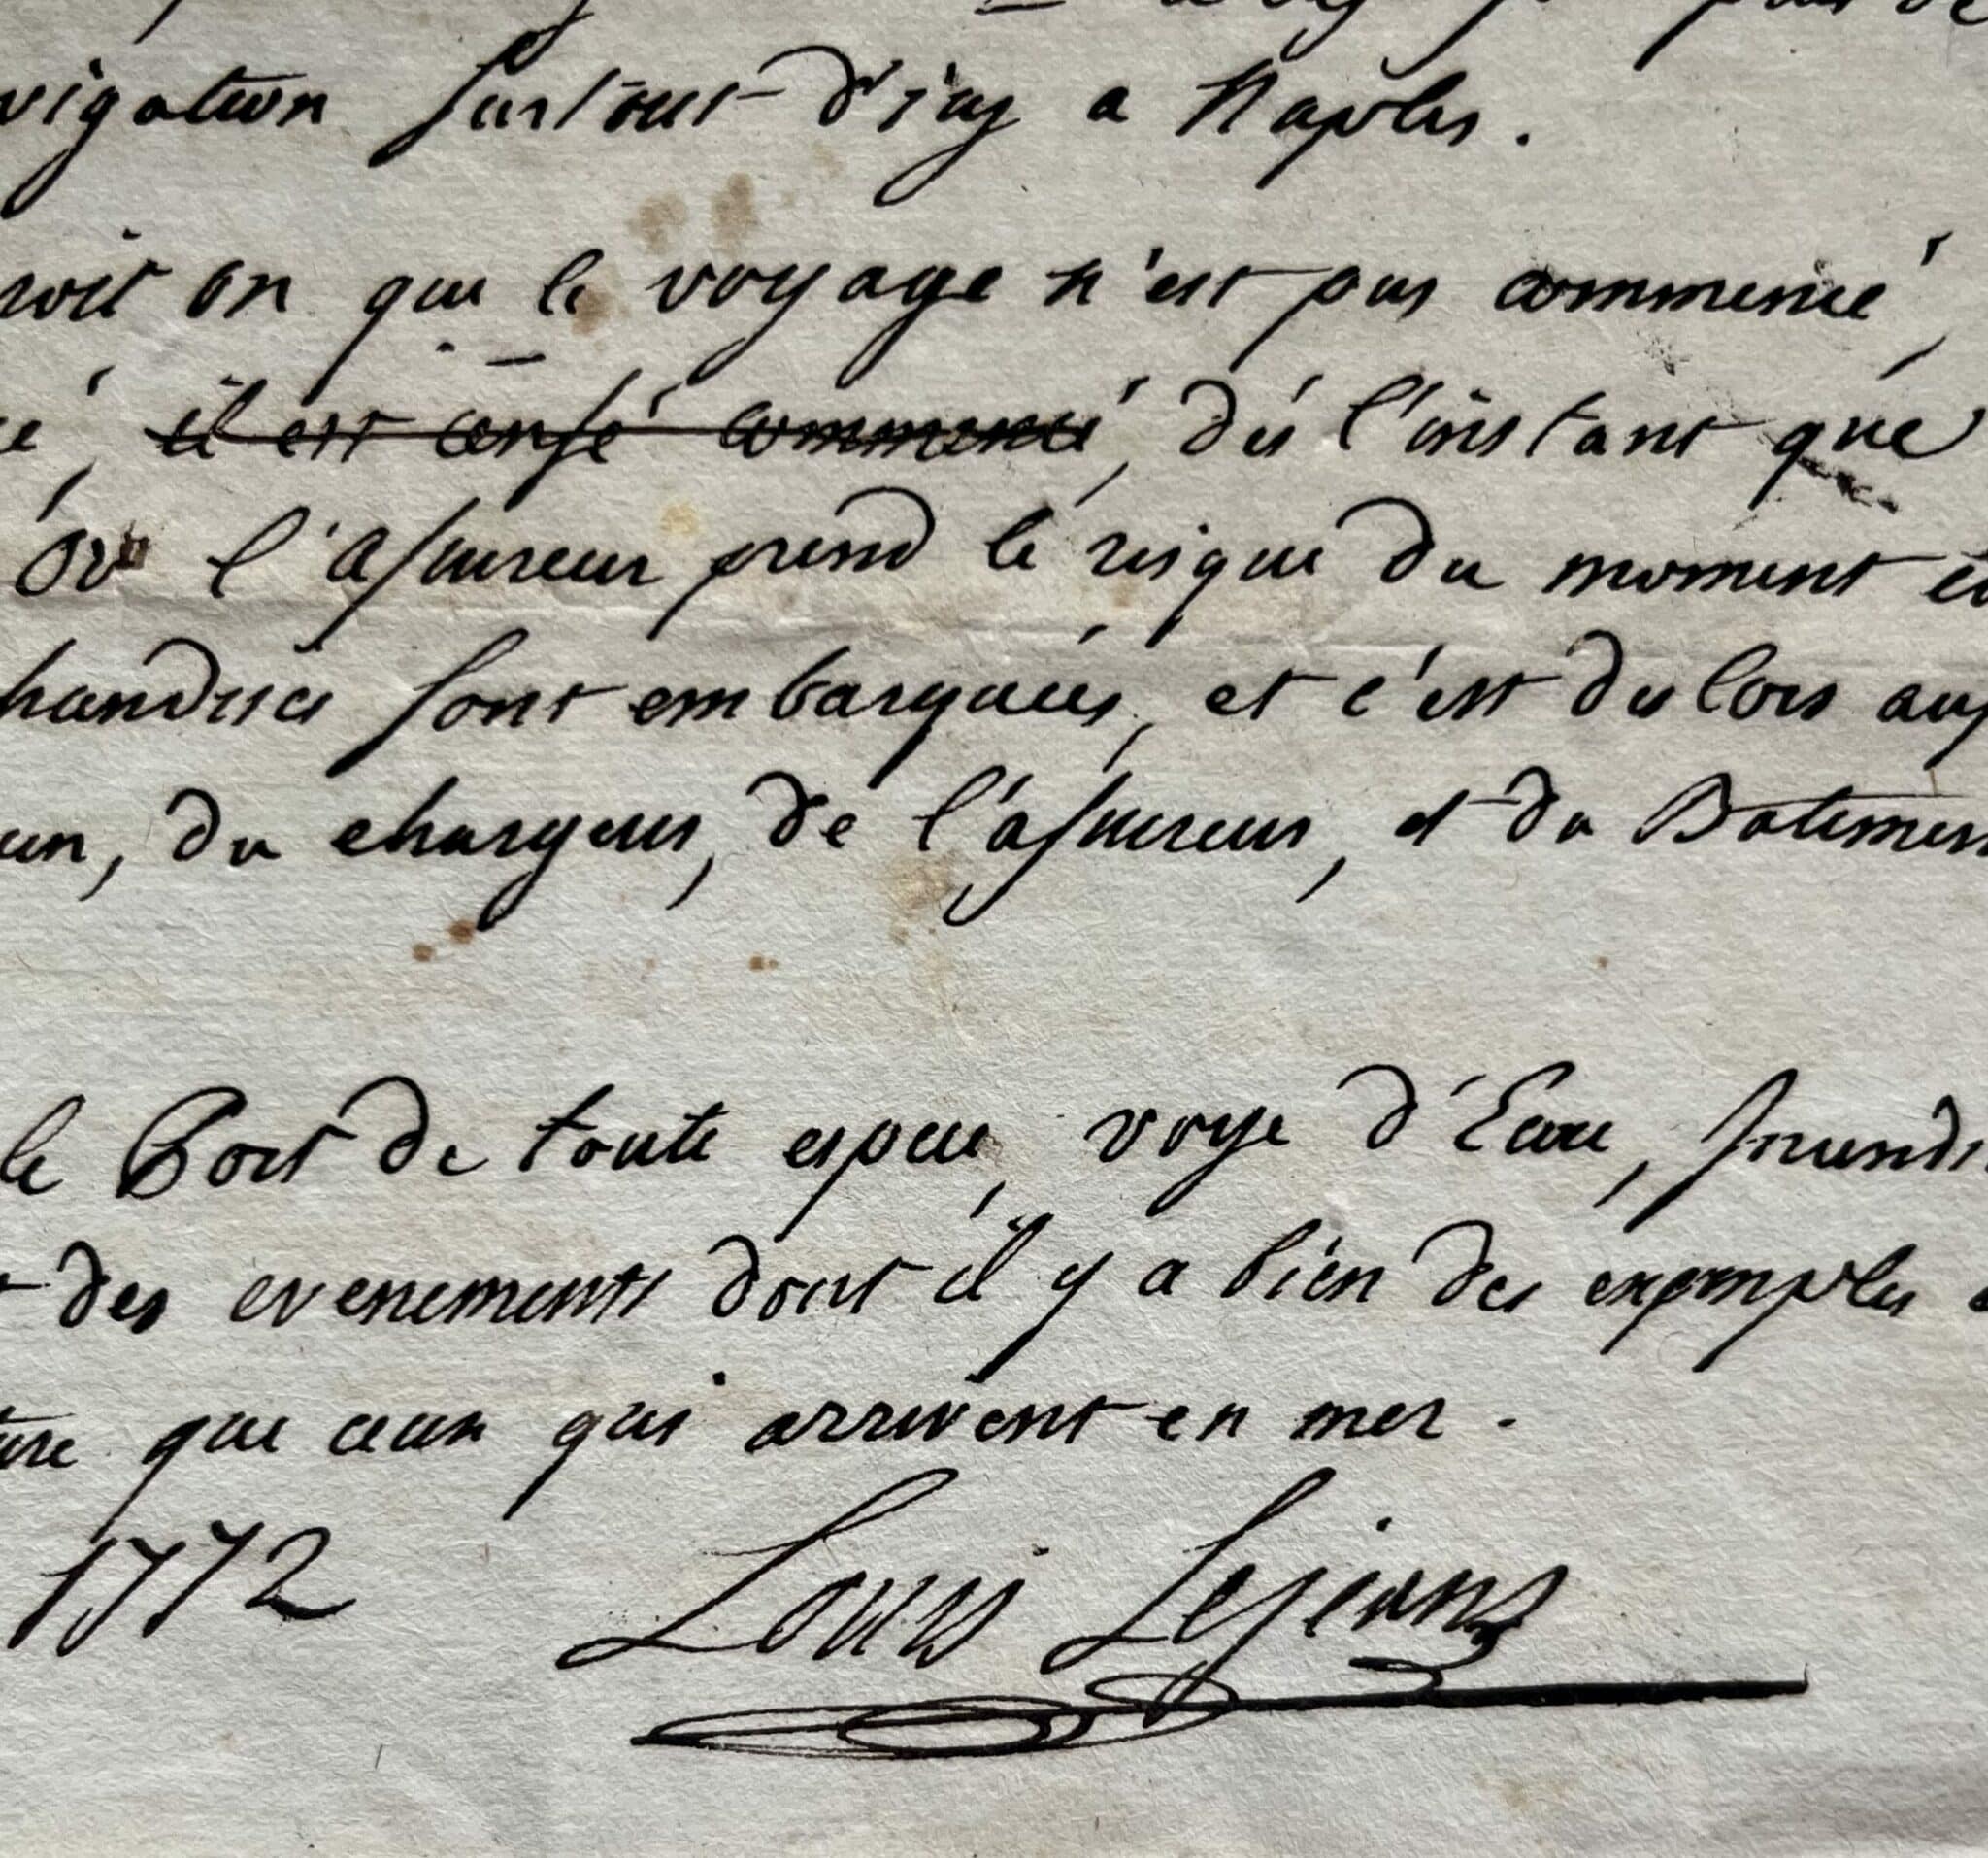 vigation surtout d'icy a Naples.
roit on que le voyage n'est pas commencé,
é, il est censé commencé, dés l'instant que
Or l'assureur prend le risque du moment
handises sont embarquées, et c'est des lors
un, du chargeur, de l'assureur, et du Batimen
le Port de toute espece, voye d'Eau, Incendi
des evenements dont il y a bien des exemples
ture que ceux qui arrivent en mer.
1772 Louis Lejeans